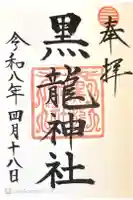 奉拝
黒龍神社
令和八年四月十八日